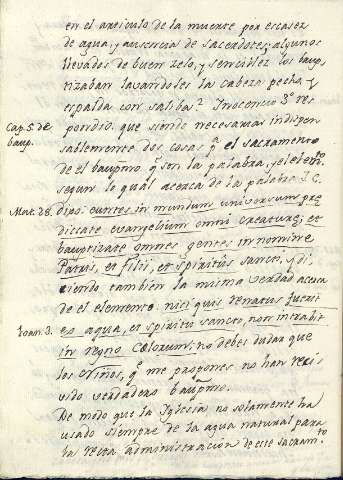 en el articulo de la muerte por escasez
de agua, y ausencia de sacerdotes; algunos
llevados de buen zelo, y sencillez los baup-
tizaban lavandoles la cabeza pecho, y
espalda con saliba? Inocencio 3.º res
Cap. 5. de baup.
pondio: que siendo necesarias indispen
sablemente dos cosas pª el sacramento
de el baupmo qe son la palabra, y elelemto
segun lo qual acerca de la palabra J. C.
Mat. 28.
dijo: euntes in mundum universum pre
dicate evangelium omni creaturę; et
bauptizate omnes gentes in nomine
Patris, et Filii, et spiritûs sancti, y di
ciendo tambien la misma verdad acerca
de el elemento: nici quis renatus fuerit
Ioan. 3.
ex aqua, et spiritu sancto, non intrabit
in regno Cælorum; no debes dudar que
los Niños, qe me propones no han reci
vido verdadero baupmo.
De modo que la Iglesia no solamente ha
usado siempre de la agua natural para
la recta administracion de este sacramto